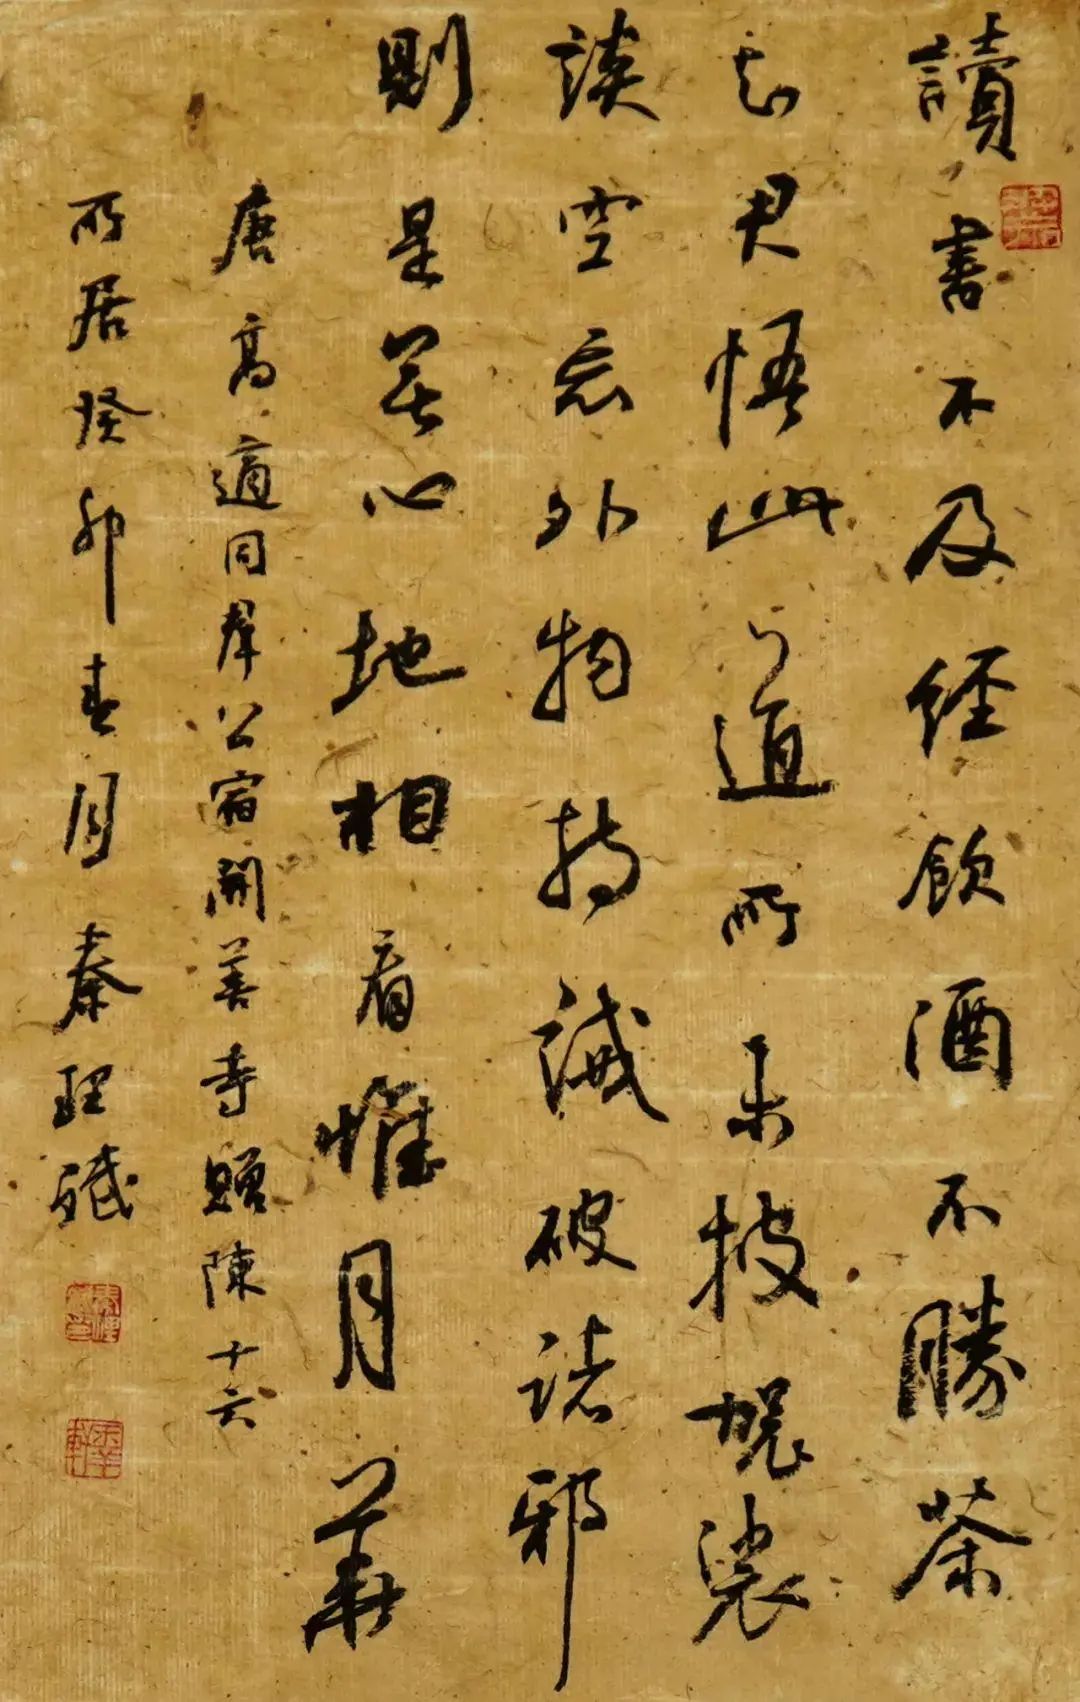 讀書不及經飲酒不勝茶
知君悟此道所未披袈裟
談空忘外物持誡破諸邪
則是無心地相看惟月華
唐高適同群公宿開善寺贈陳十六
所居癸卯春月秦理斌